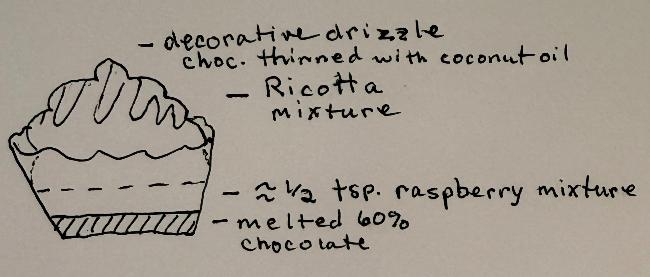 - decorative drizzle
choc. thinned with coconut oil
- Ricotta
mixture
- ≈ 1/2 tsp. raspberry mixture
- melted 60%
chocolate